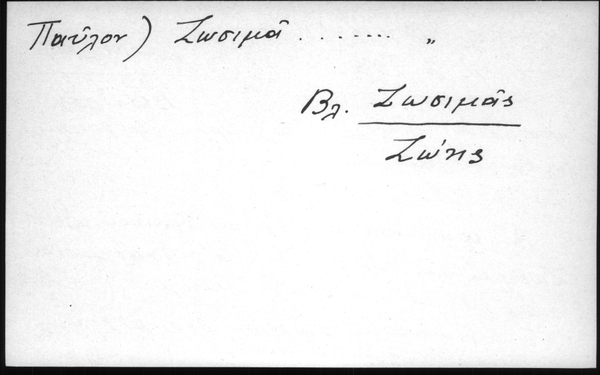 Παῦλον) Ζωσιμᾶ . . . . . . . . . "
Βλ. Ζωσιμᾶς
Ζώης